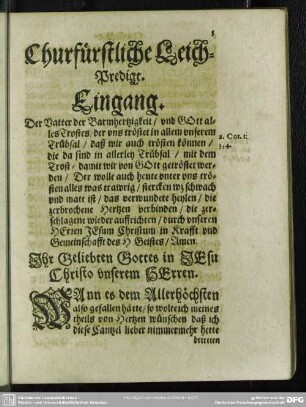 Churfürstliche Leich-
Predigt.
Eingang.
Der Vatter der Barmhertzigkeit / vnd GOtt al-
les Trostes / der vns tröstet in allem vnserem
Trübsal / daß wir auch trösten können /
die da sind in allerley Trübsal / mit dem
Trost / damit wir von GOtt getröstet wer-
den / Der wolle auch heute vnter vns trö-
sten alles was trawrig / stercken wz schwach
vnd matt ist / das verwundete heylen / die
zerbrochene Hertzen verbinden / die ge-
schlagene wieder auffrichten / durch vnseren
HErren JEsum Christum in Krafft vnd
Gemeinschafft des H Geistes / Amen.
2. Cor. 1:
3:4.
Ihr Geliebten Gottes in JEsu
Christo vnserem HErren.
WAnn es dem Allerhöchsten
also gefallen hätte / so wolte ich meines
theils von Hertzen wünschen daß ich
diese Cantzel lieber nimmermehr hette
betretten